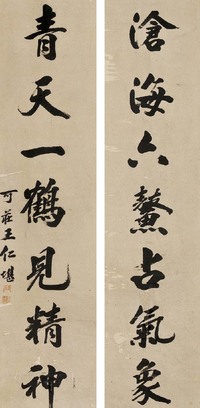 滄海六鰲占氣象
青天一鶴見精神
可莊王仁堪